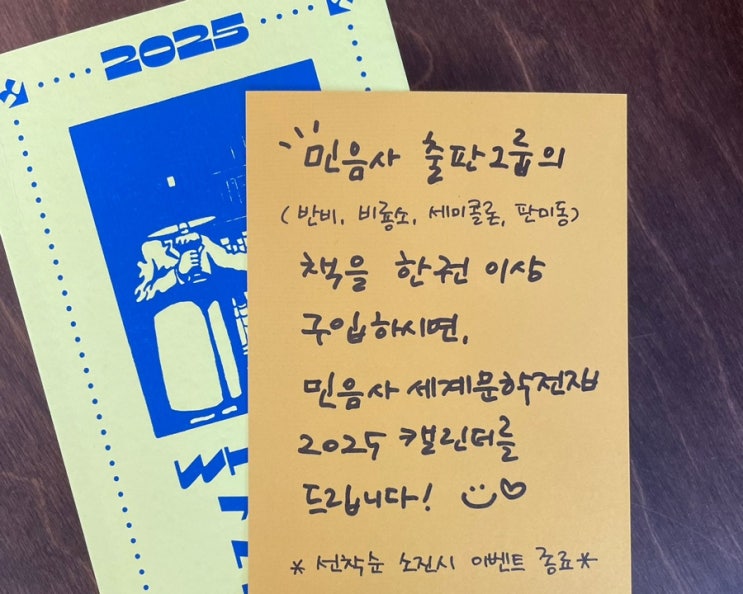 2025
민음사 출판그룹의
(반비, 비룡소, 세미콜론, 판미동)
책을 한권 이상
구입하시면,
민음사 세계문학전집
2025 캘린더를
드립니다!
* 선착순 소진시 이벤트 종료 *